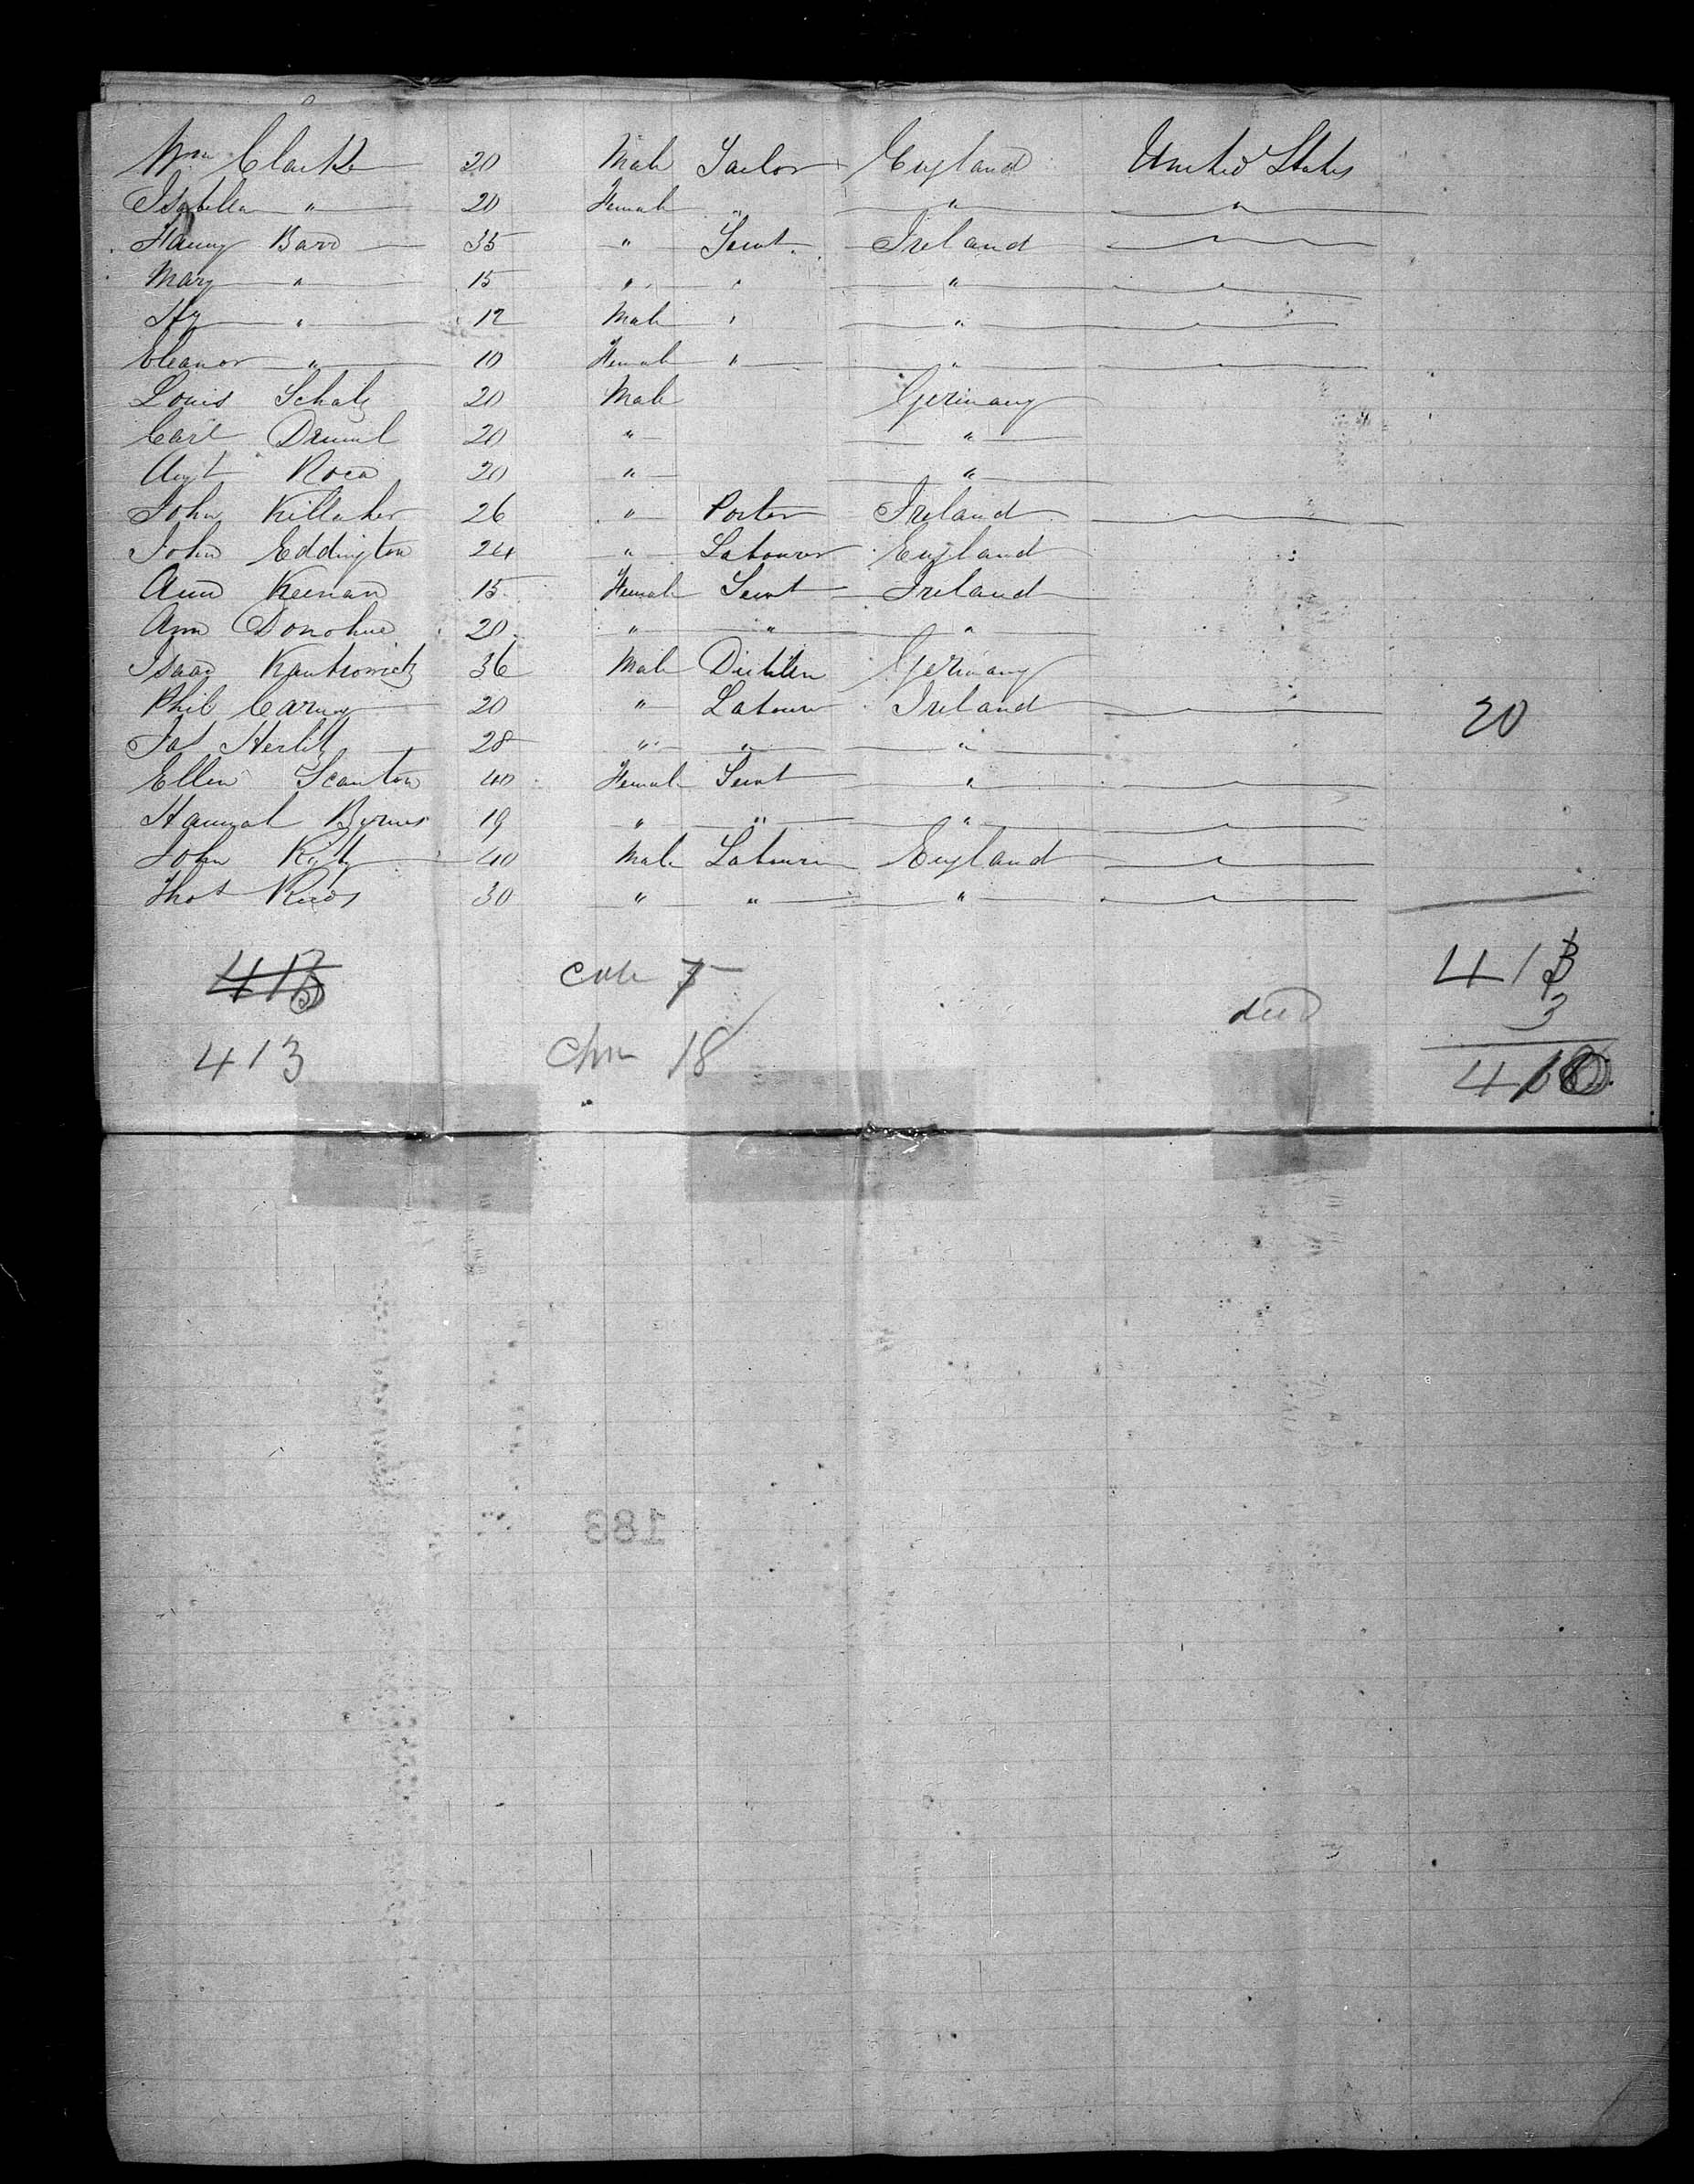 Wm Clarke 20 Male Tailor England United States
Isabella " 20 Female " " "
Fanny Barr 35 " Servt Ireland
Mary " 15 " " "
Hy " 12 Male " "
Eleanor " 10 Female " "
Louis Schalz 20 Male Germany
Carl 20 " "
Augt 20 " "
John Killaher 26 " Porter Ireland
John Eddington 24 " Labourer England
Ann Keenan 15 Female Servt Ireland
Ann Donohue 20 " " "
Isaac Kantrowicz 36 Male Germany
Phil Carney 20 " Labourer Ireland 20
Jas 28 " " "
Ellen Scanton 40 Female Servt "
Hannah Byrnes 19 " " "
John 40 Male Labourer England
Thos 30 " " "
413 7 413
died 3
413 18
183